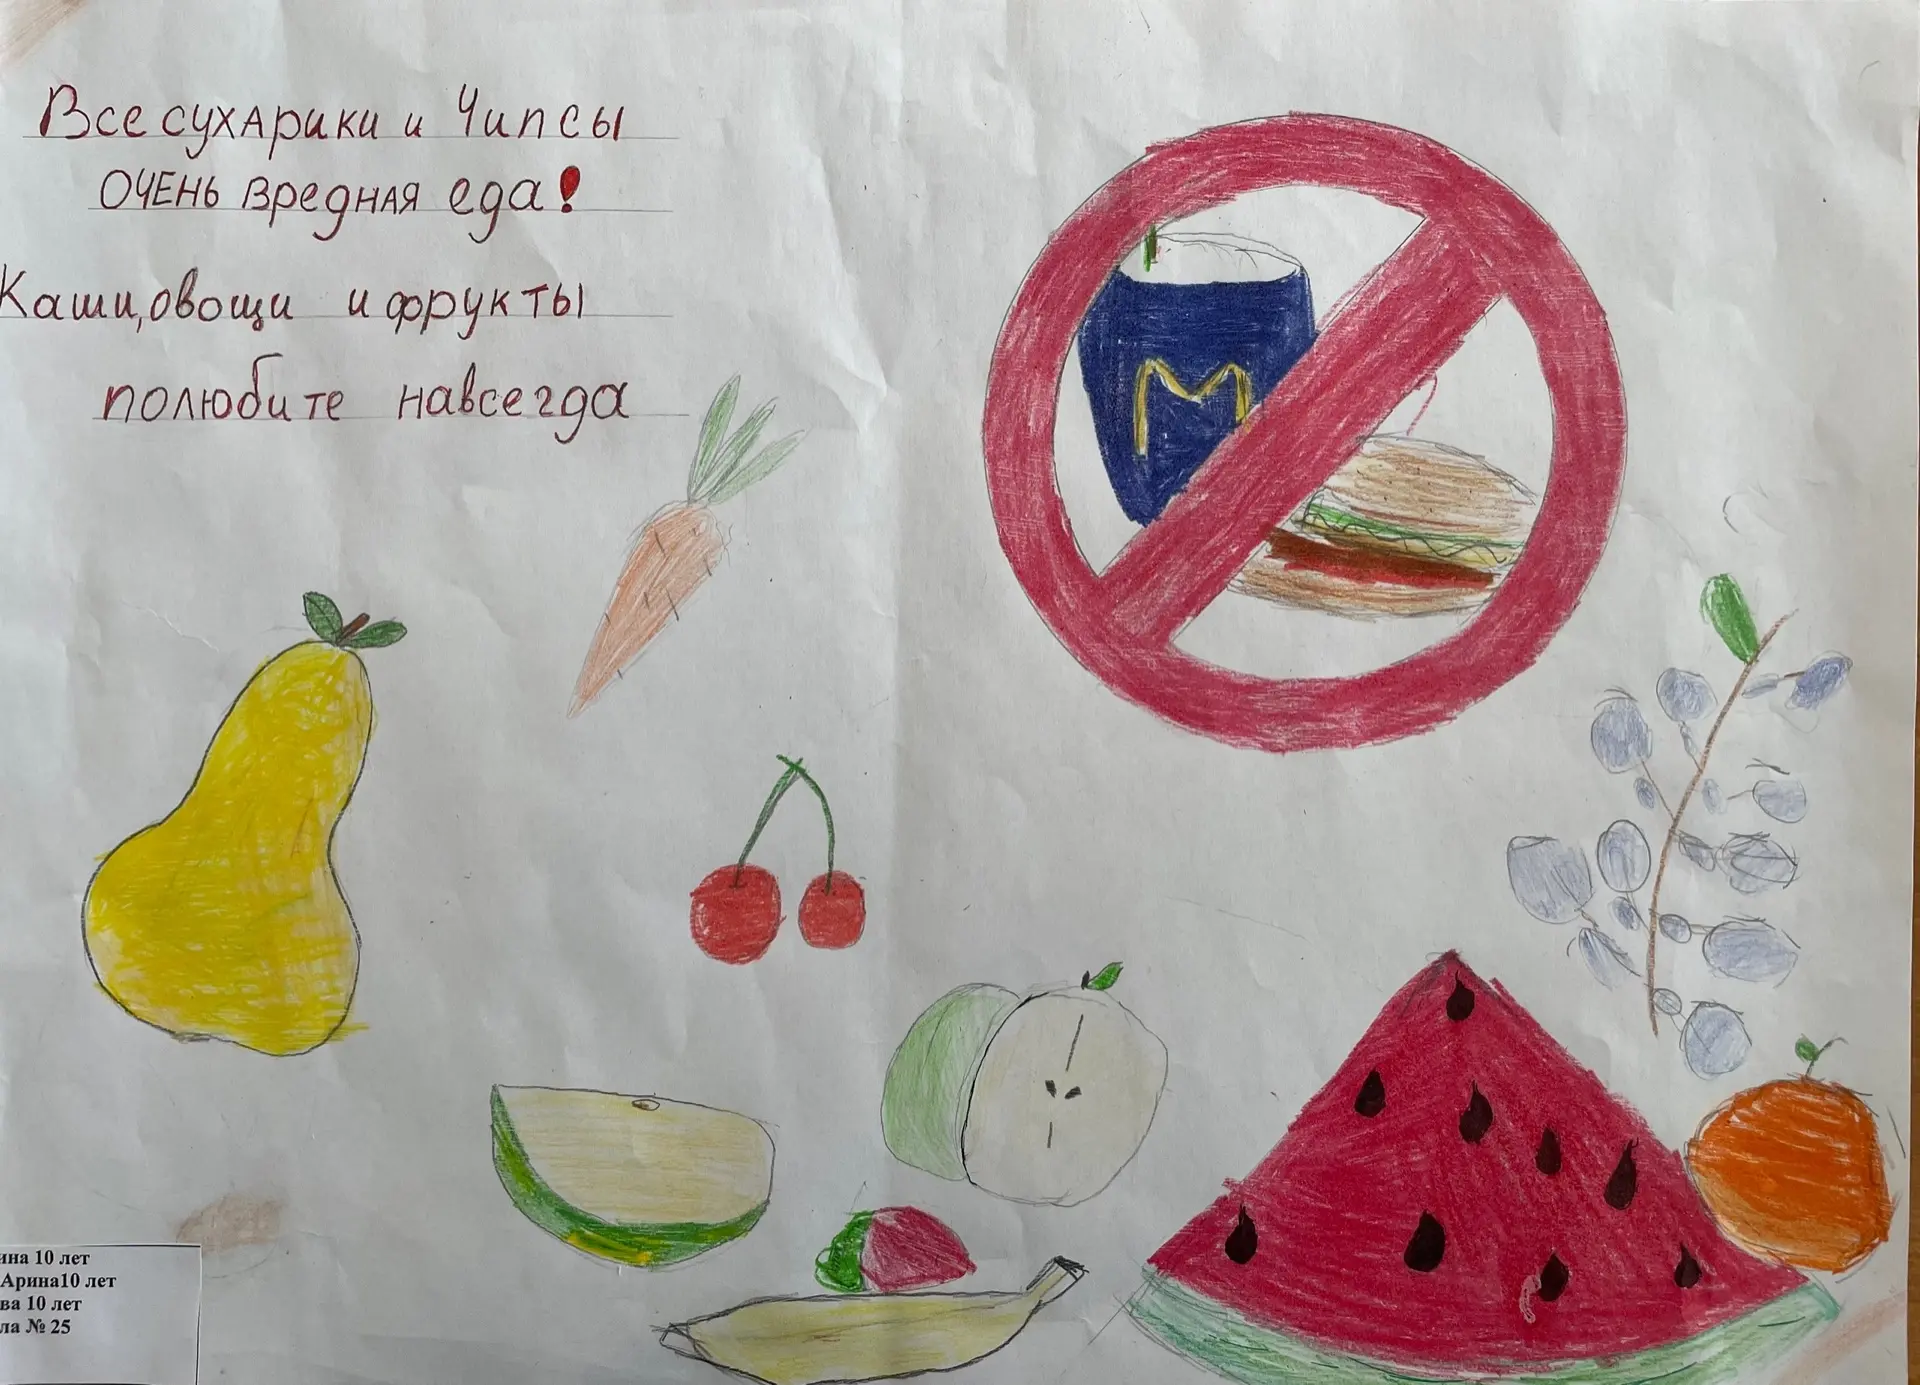 Все сухарики и Чипсы
ОЧЕНЬ вредная еда!
Каши, овощи и фрукты
полюбите навсегда
М
10 лет
Арина10 лет
10 лет
№ 25